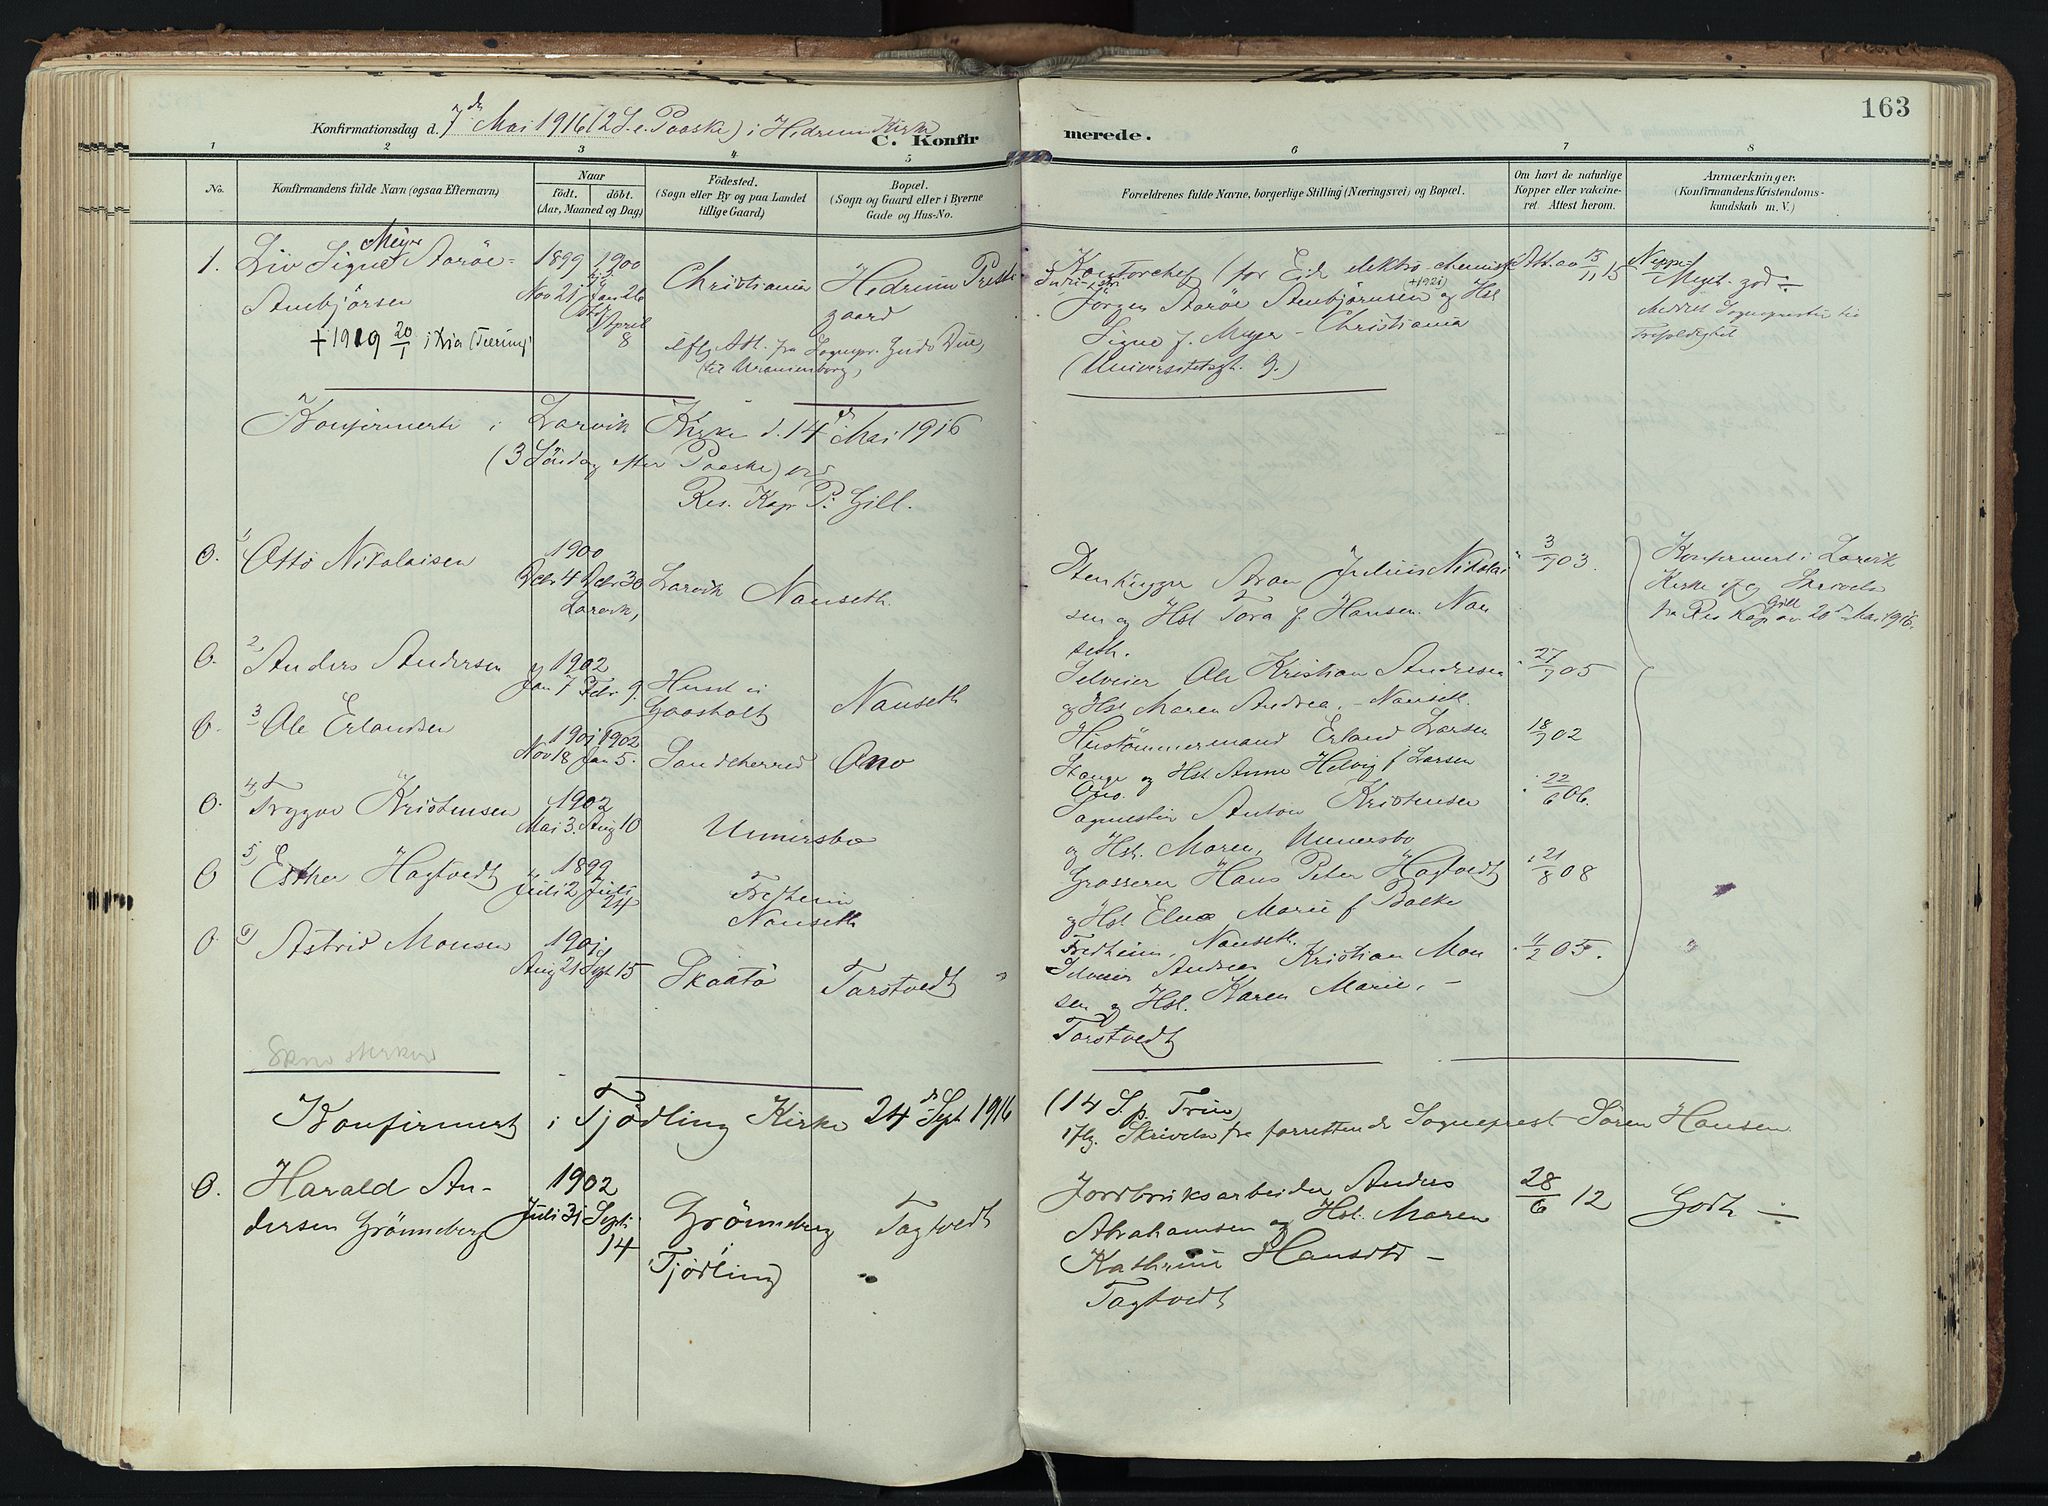 163
Konfirmationsdag d. 7de Mai 1916 (2 S. e. Paaske) i Hedrum Kirke
C. Konfirmerede.
1 2 3 4 5 6 7 8
No.
Konfirmandens fulde Navn (ogsaa Efternavn)
Naar
født. døbt.
(Aar, Maaned og Dag)
Fødested.
(Sogn eller By og paa Landet
tillige Gaard)
Bopæl.
(Sogn og Gaard eller i Byerne
Gade og Hus-No.
Forældrenes fulde Navne, borgerlige Stilling (Næringsvei) og Bopæl.
Om havt de naturlige
Kopper eller vakcine-
ret. Attest herom.
Anmærkninger.
(Konfirmandens Kristendoms-
kundskab m. V.)
1. Liv Signe Meyer Aarøe-
Stenbjörsen
+ 1919 20/1 i Kra
1899
Nov 21
1900
Jan 26
April
8
Christiania
Hedrum Preste
gaard
iflg Att. fra Sognepr.
(til Uranienborg,
Kontorchef (for Eid elektro-chemisk
Industri
Jörgen Aaröe Stenbjörnsen (+1921) og Hst
Signe f. Meyer - Christiania
(Universitetsgt. 9.)
Att. av 13/11 15
Meget god
Konfirmerte i Larvik Kirke d. 14de Mai 1916
(3 Söndag efter Paaske) ved
Res. Kap P. Gill.
0. 1) Otto Nikolaisen
1900
Dcbr 4 Dcbr 30
Larvik,
Larvik
Nanseth.
Stenhugger Aron Julius Nikolai
sen og Hst Tora f. Hansen. Nan
seth.
3/7 03.
Konfirmert i Larvik
Kirke iflg Skrivelse
fra Res Kap Gill av 20de Mai 1916.
0. 2) Anders Andersen
1902
Jan 7 Febr. 9
Gaasholt
Nanseth
Selveier Ole Kristian Andersen
og Hst Maren Andrea. - Nanseth.
27/7 05
0. 3) Ole Erlandsen
1901 1902
Nov 18 Jan 5.
Sandeherred
Ono
Hustömmermand Erland Larsen
Stange og Hst Anne Helvig f Larsen
Ono.
18/7 02
0. 4) Trygve Kristensen
1902
Mai 3. Aug 10
Unnersbo
Anton Kristensen
og Hst. Maren, Unnersbo
22/6 06.
0 5) Esther Hagtvedt
1899
Juli 2 Juli
24
Fredheim
Nanseth
Grosserer Hans Peter Hagtvedt
og Hst Elna Marie f Balke
Fredheim, Nanseth.
21/8 08
0 6) Astrid Monsen
1901
Aug 21 Sept 15
Skaatö
Torstvedt
Selveier Andreas Kristian Mon
sen og Hst. Karen Marie, -
Torstvedt
4/2 05.
Konfirmert i Tjödling Kirke 24de Sept 1916
(14 S. p. Trin)
iflg. Skrivelse fra forrettende Sogneprest Sören Hansen
0. Harald An-
dersen Grönneberg
1902
Juli 31 Sept.
14
Grönneberg
Tjödling
Tagtvedt
Jordbruksarbeider Anders
Abrahamsen og Hst. Maren
Kathrine Hansdtr -
Tagtvedt
28/6 12
Godt